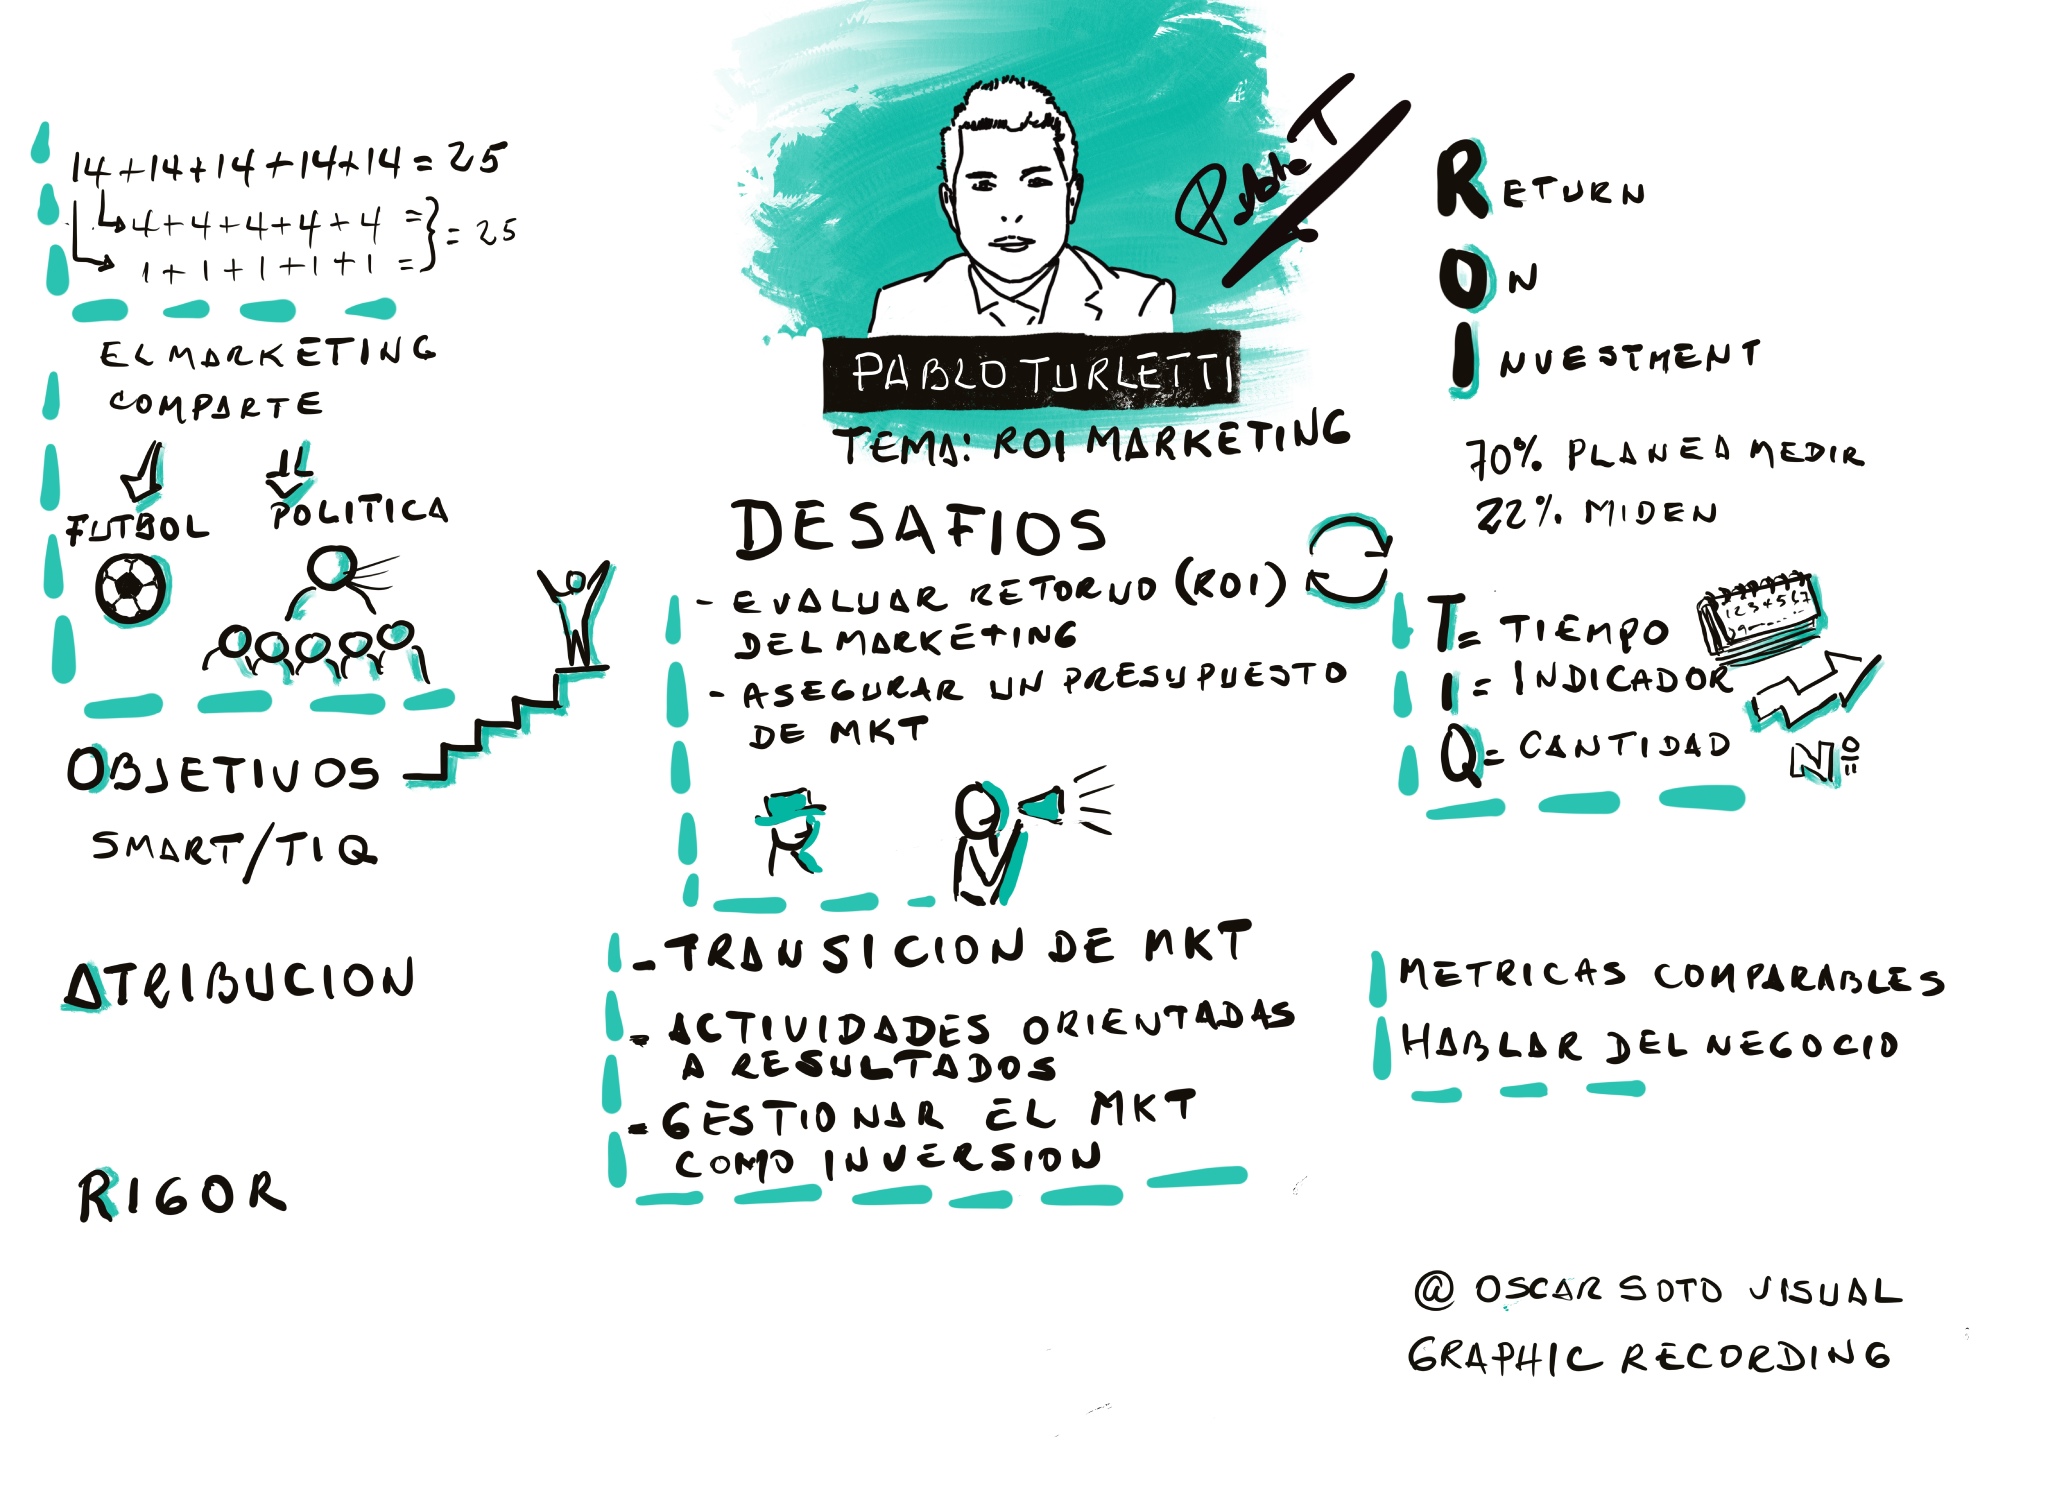 14+14+14+14+14=25
4+4+4+4+4 =
1+1+1+1+1 =
= 25
EL MARKETING
COMPARTE
FUTBOL
POLITICA
OBJETIVOS
SMART/TIQ
ATRIBUCION
RIGOR
Pablo T
PABLO TURLETTI
TEMA: ROI MARKETING
DESAFIOS
- EVALUAR RETORNO (ROI)
DEL MARKETING
- ASEGURAR UN PRESUPUESTO
DE MKT
- TRANSICION DE MKT
- ACTIVIDADES ORIENTADAS
A RESULTADOS
- GESTIONAR EL MKT
COMO INVERSION
RETURN
ON
INVESTMENT
70% PLANEA MEDIR
22% MIDEN
T= TIEMPO
1234567
I= INDICADOR
Q= CANTIDAD
Nº
METRICAS COMPARABLES
HABLAR DEL NEGOCIO
@ OSCAR SOTO VISUAL
GRAPHIC RECORDING